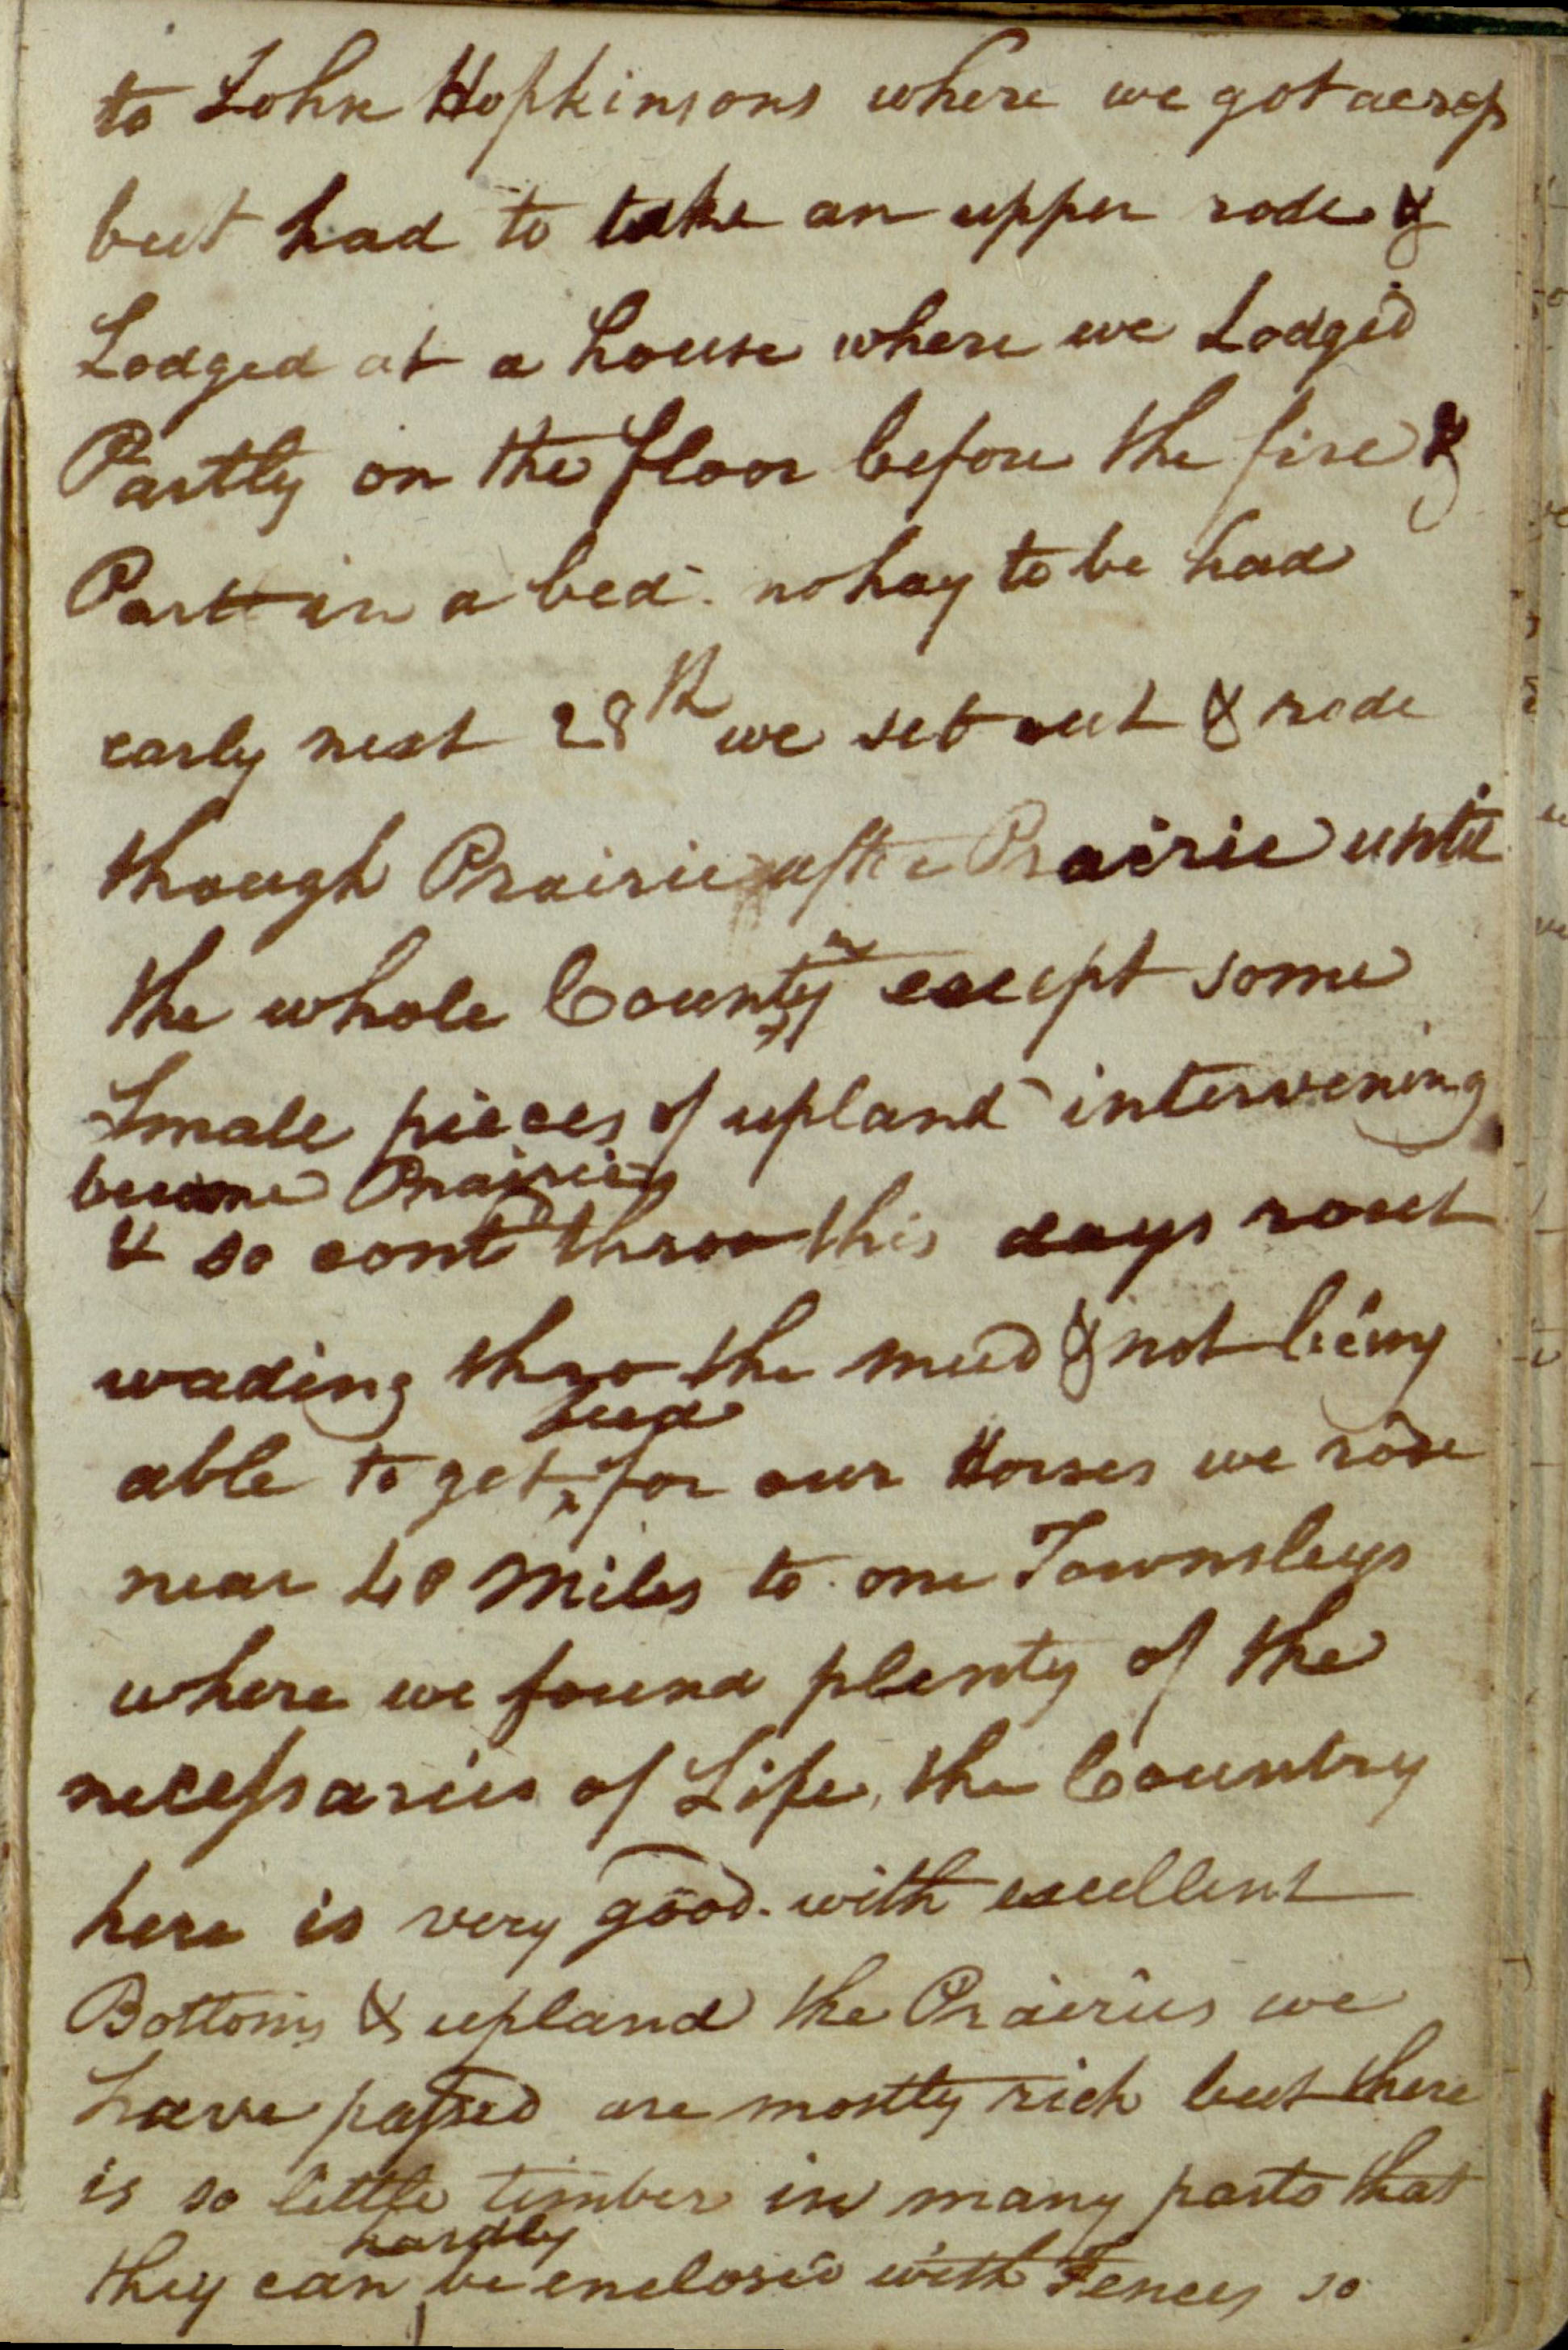 to John Hopkinsons where we got across
but had to take an upper rode &
Lodged at a house where we Lodged
Partly on the floor before the fire &
Part in a bed. no hay to be had
early next 28th we set out & rode
though Prairie after Prairie until
the whole County except some
Small pieces of upland intervening
become Prairies
& so contd throo this days rout
wading thro the mud & not being
feed
able to get for our Horses we rode
near 40 Miles to one Townsleys
where we found plenty of the
necessaries of Life, the Country
here is very good. with excellent
Bottoms & upland the Prairies we
have passed are mostly rich but there
is so little timber in many parts that
hardly
they can be enclosed with Fences so